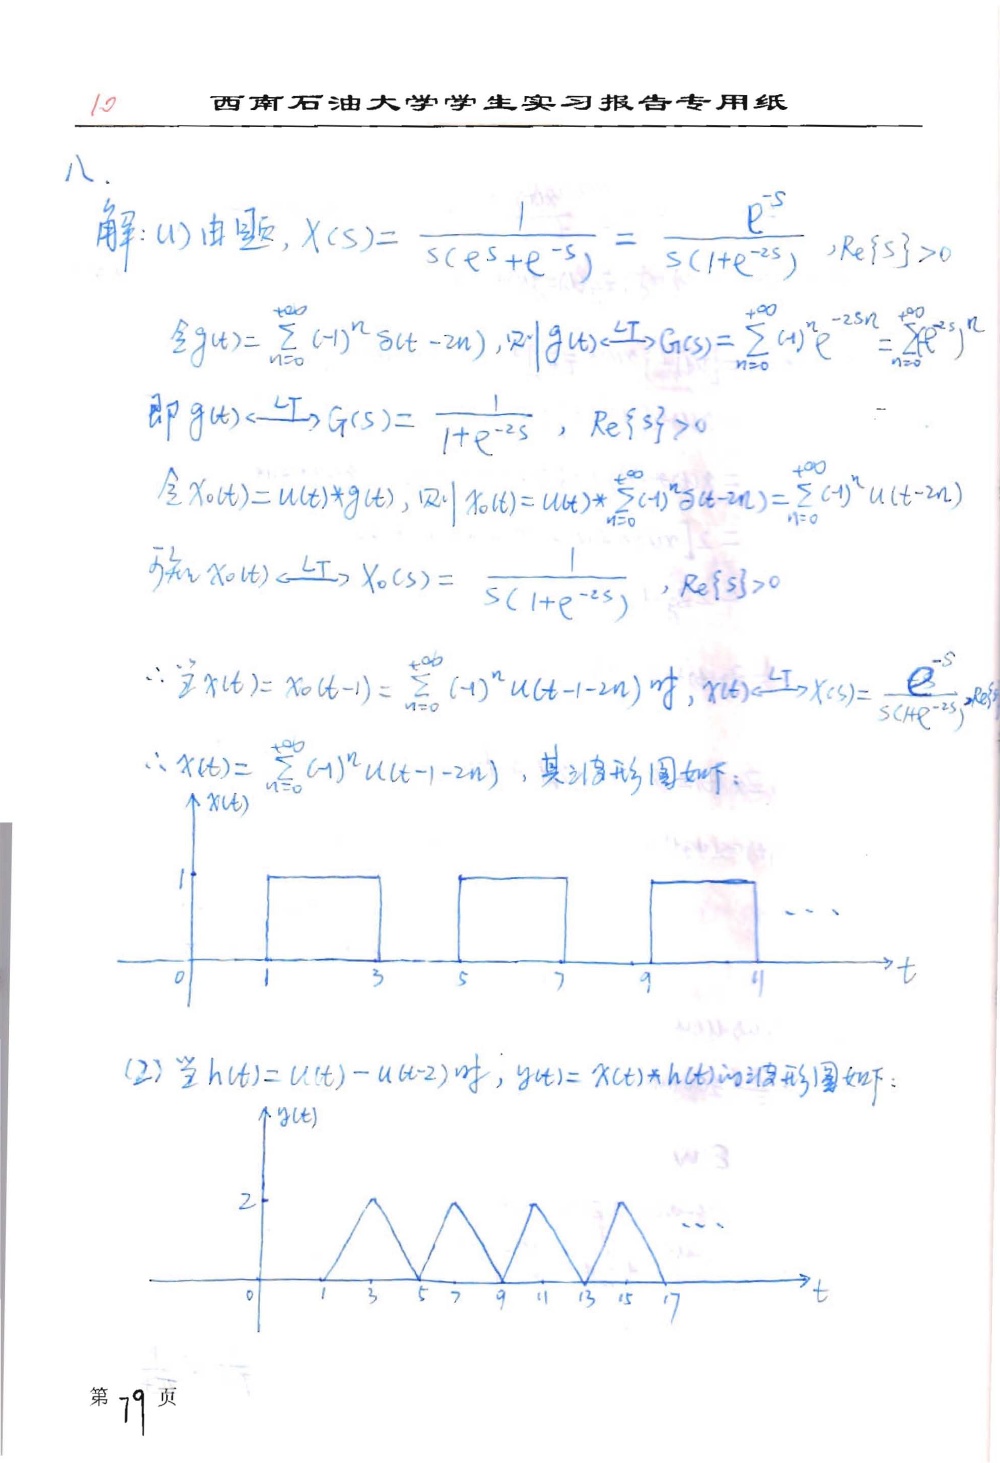 10
西南石油大学学生实习报告专用纸
八.
解:(1)由题, X(s)= 1/(s(e^s+e^-s)) = e^-s/(s(1+e^-2s)) , Re{s}>0
令g(t)= Σ_{n=0}^{+∞} (-1)^n δ(t-2n), 则 g(t) <—LT—> G(s)= Σ_{n=0}^{+∞} (-1)^n e^-2sn = Σ_{n=0}^{+∞} (-e^-2s)^n
即 g(t) <—LT—> G(s)= 1/(1+e^-2s) , Re{s}>0
令 x₀(t)=u(t)*g(t), 则 x₀(t)=u(t)* Σ_{n=0}^{+∞} (-1)^n δ(t-2n)= Σ_{n=0}^{+∞} (-1)^n u(t-2n)
可知 x₀(t) <—LT—> X₀(s)= 1/(s(1+e^-2s)) , Re{s}>0
∴当x(t)= x₀(t-1)= Σ_{n=0}^{+∞} (-1)^n u(t-1-2n) 时, x(t) <—LT—> X(s)= e^-s/(s(1+e^-2s)) , Re{s
∴ x(t)= Σ_{n=0}^{+∞} (-1)^n u(t-1-2n) , 其波形图如下:
x(t)
1
0 1 3 5 7 9 11 t
...
(2) 当h(t)=u(t)-u(t-2)时, y(t)= x(t)*h(t)的波形图如下:
y(t)
2
...
0 1 3 5 7 9 11 13 15 17 t
第 79 页